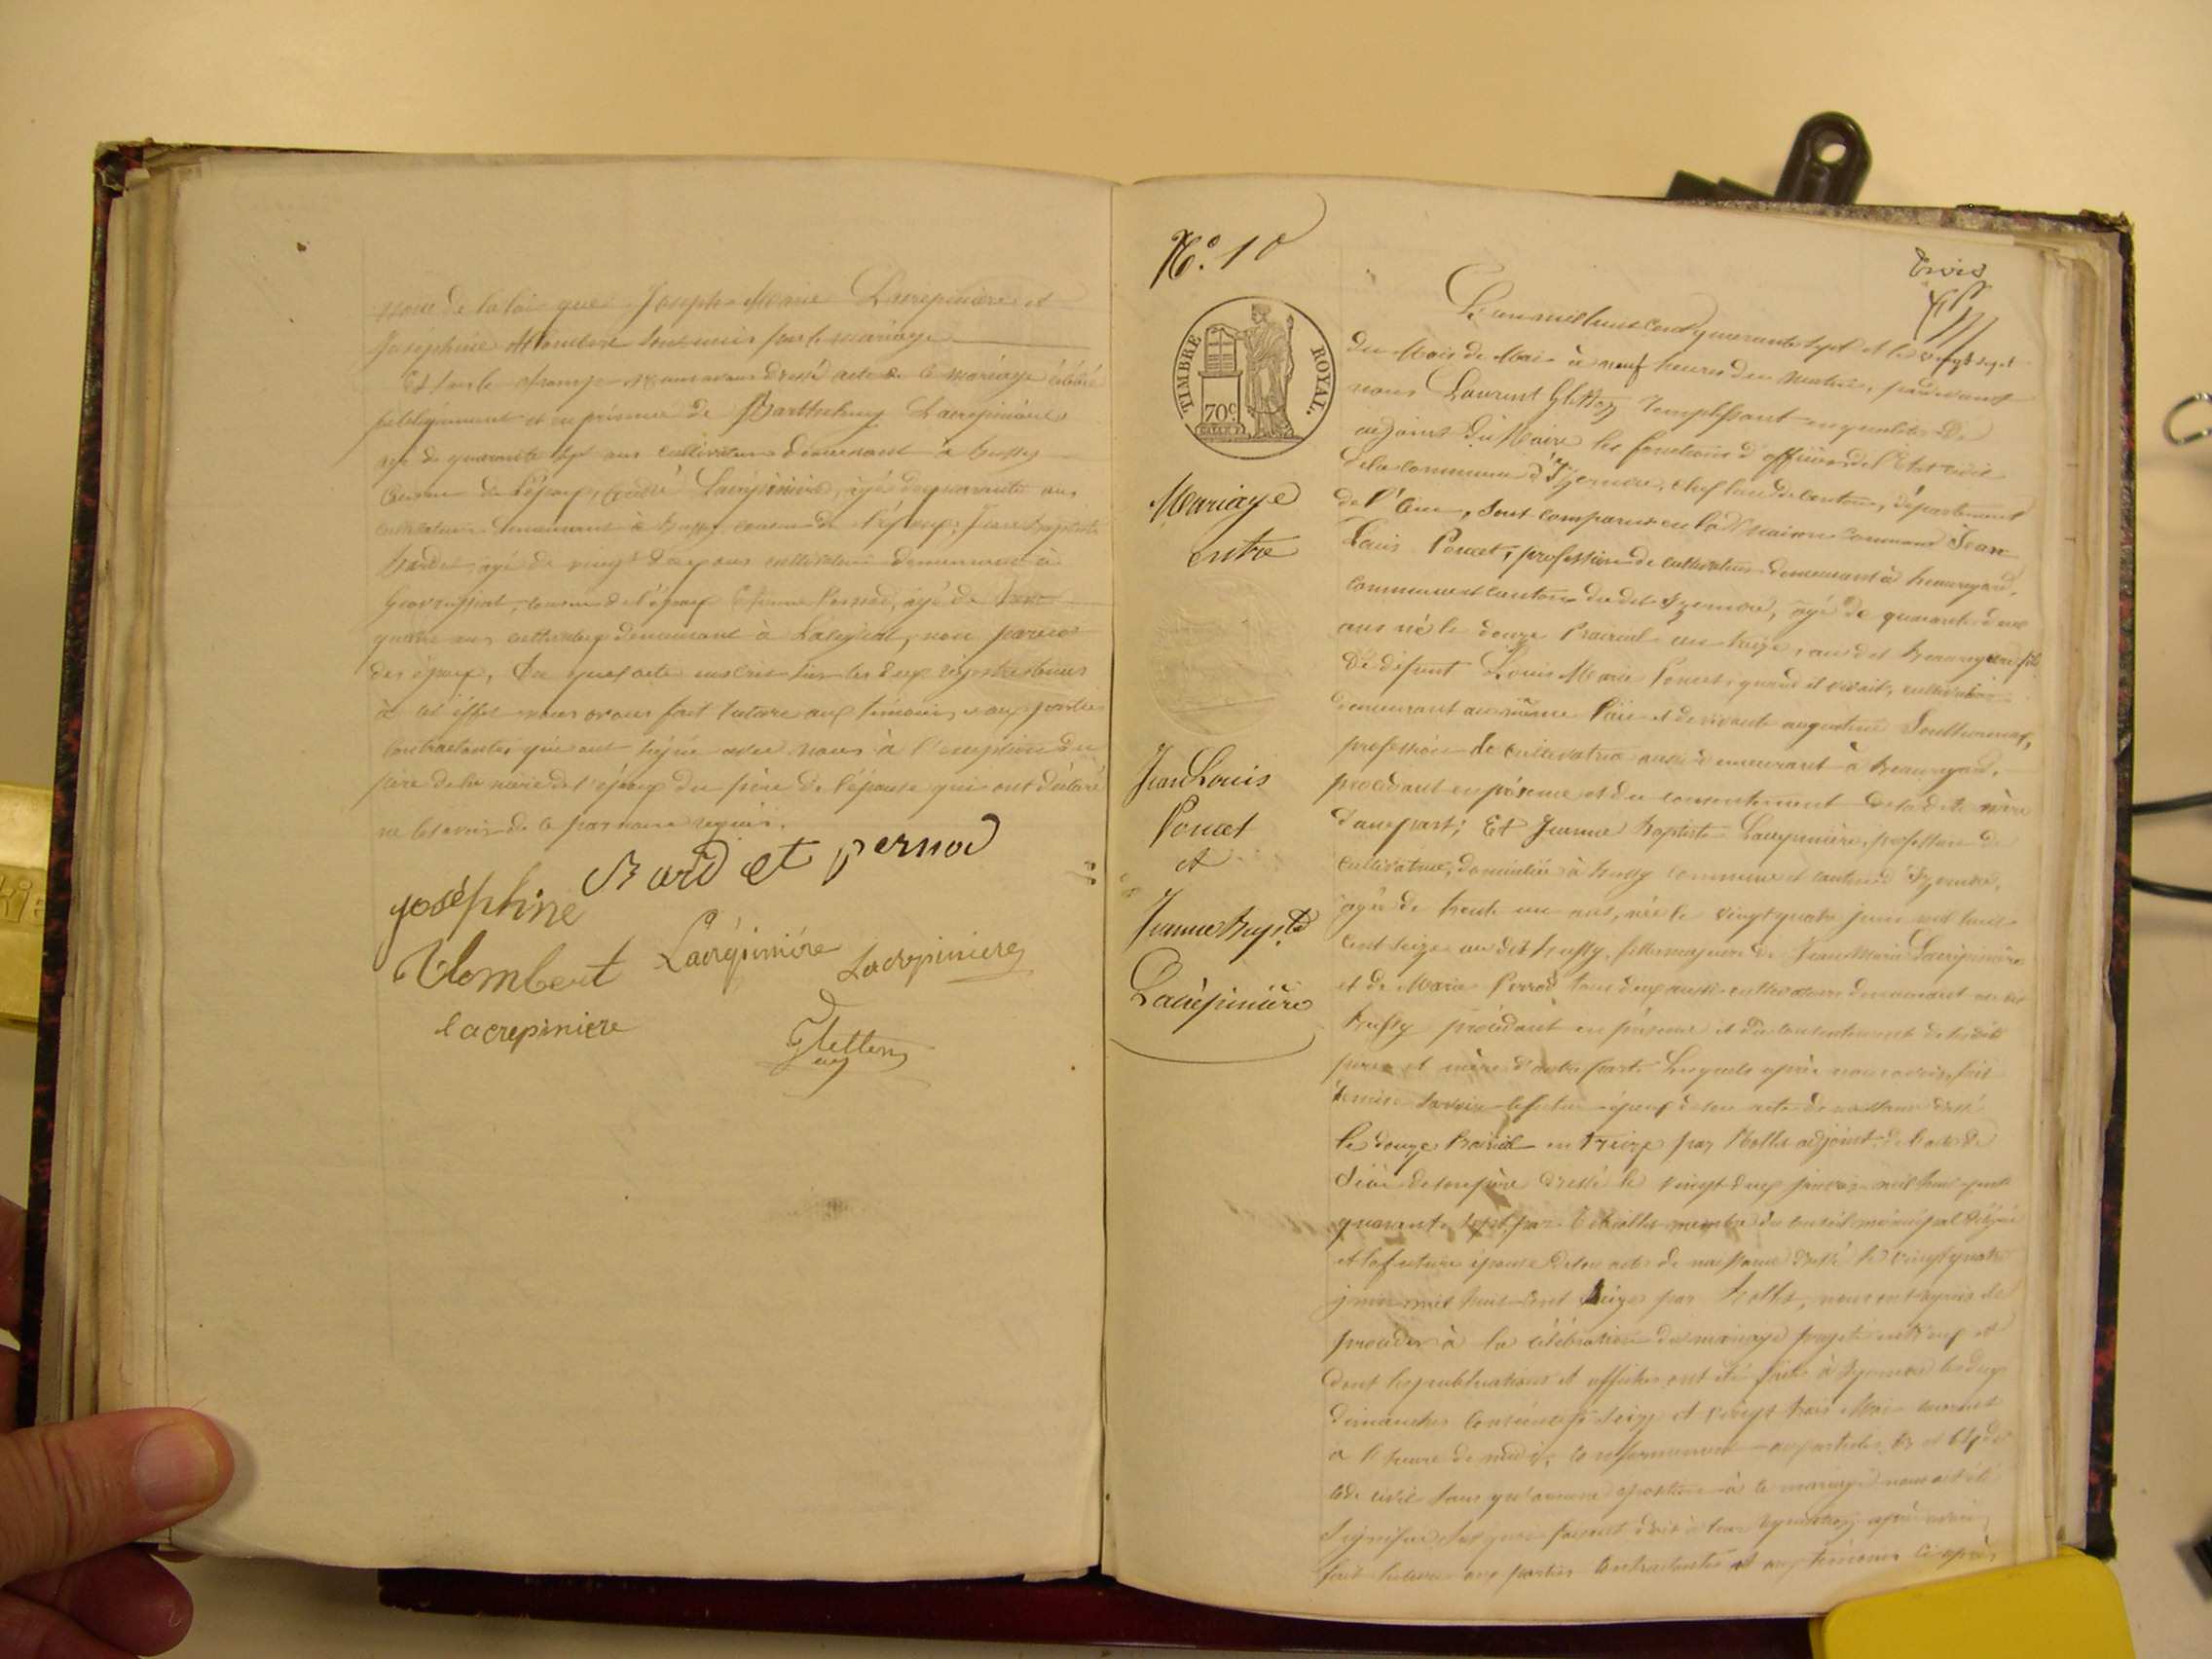 nom de la loi que Joseph Marie Lacrepiniere et
Joséphine Mombert sont unis par le mariage
Et sur le champ nous avons dressé acte de ce mariage célébré
publiquement et en présence de Barthelemy Lacrepiniere
agé de quarante sept ans cultivateur demeurant à Bussy
cousin de l'époux, Lacrépinière, âgé de quarante ans
cultivateur demeurant à Bussy cousin de l'époux, Jean Baptiste
Bardet, agé de vingt deux ans cultivateur demeurant à
Geovreissiat, cousin de l'époux Etienne Pernod, âgé de
quatre ans cultivateur demeurant à , non parent
des époux, Du quel acte inscrit sur les deux registres tenus
à cet effet nous avons fait lecture aux témoins et aux parties
contractantes qui ont signé avec nous à l'exception du
père de la mère de l'époux du père de l'épouse qui ont déclaré
ne le savoir de ce par nous requis.
Bard et pernod
joséphine
Mombert Lacrépinière Lacrepiniere
lacrepiniere
Gletton
adj
N.° 10
trois
TIMBRE ROYAL.
70c
Mariage
entre
Jean Louis
Poncet
et
Jeanne Bapte
Lacrépinière
L'an mil huit cent quarante sept et le vingt sept
du Mois de Mai à neuf heures du matin, pardevant
nous Laurent Gletton remplissant en qualité de
adjoint du Maire les fonctions d'officier de l'Etat civil
de la commune d'Izernore, chef lieu de canton, département
de l'Ain, sont comparus en la maison commune Jean
Louis Poncet, profession de cultivateur demeurant à Beauregard,
commune et canton du dit Izernore, âgé de quarante deux
ans né le douze Prairial an treize, au dit Beauregard fils
de défunt Louis Marie Poncet, quand il vivait, cultivateur
demeurant au même lieu et de vivante augustine
profession de cultivatrice aussi demeurant à Beauregard,
procédant en présence et du consentement de sa dite mère
d'une part; Et Jeanne Baptiste Lacrepiniere, profession de
cultivatrice, domiciliée à Bussy commune et canton d'Izernore,
agée de trente un ans, née le vingt quatre juin mil huit
cent seize au dit Bussy, fille majeure de Jean Marie Lacrepiniere
et de Marie Perrod tous deux aussi cultivateurs demeurant au dit
Bussy procédant en présence et du consentement de ses dits
père et mère d'autre part. Lesquels après nous avoir fait
remise savoir le futur époux de son acte de naissance dressé
le douze Prairial an treize par Nollet adjoint de l'acte de
décès de son père dressé le vingt deux janvier mil huit cent
quarante sept par membre du conseil municipal délégué
et la future épouse de son acte de naissance dressé le vingt quatre
juin mil huit cent seize par Nollet, nous ont requis de
procéder à la célébration du mariage projeté entr'eux et
dont les publications et affiches ont été faites à Izernore les deux
dimanches consécutifs seize et vingt trois Mai courant
à l'heure de midi, conformément aux articles 63 et 64 du
code civil sans qu'aucune opposition à ce mariage nous ait été
signifiée faisant droit à leur réquisition, après avoir
fait lecture aux parties contractantes et aux témoins ci-après